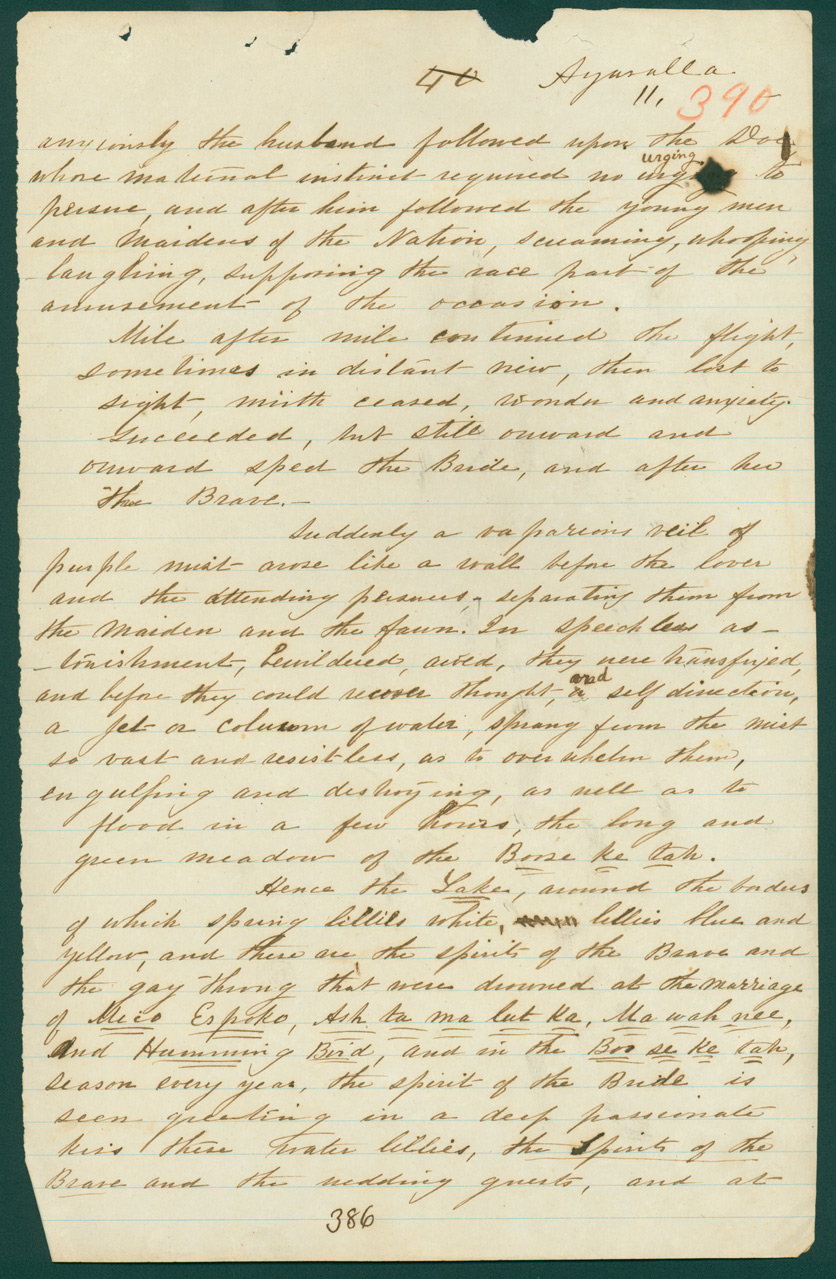 40 Ayavalla
11, 390
anxiously the husband followed upon the Doe
urging
whose maternal instinct required no to
persue, and after him followed the young men
and Maidens of the Nation, screaming, whooping,
laughing, supposing the race part of the
amusement of the occasion.
Mile after mile continued the flight,
sometimes in distant view, then lost to
sight, mirth ceased, wonder and anxiety
succeeded, but still onward and
onward sped the Bride, and after her
the Brave.—
Suddenly a vaparious veil of
purple mist arose like a wall before the lover
and the attending persuers, separating them from
the Maiden and the fawn. In speechless as-
-tonishment, bewildered, awed, they were transfixed,
and
and before they could recover thought, self direction,
a jet or column of water, sprang from the mist
so vast and resistless, as to overwhelm them,
engulfing and destroying, as well as to
flood in a few hours, the long and
green meadow of the Boose ke tah.
Hence the Lake, around the borders
of which spring lillies white, lillies blue and
yellow, and these are the spirits of the Brave and
the gay throng that were drowned at the marriage
of Mico Espoko, Ash ta ma lut Ka, Ma wah nee,
And Humming Bird, and in the Boo se ke tah,
season every year, the spirit of the Bride is
seen greeting in a deep passionate
kiss these water lillies, the Spirits of the
Brave and the wedding guests, and at
386